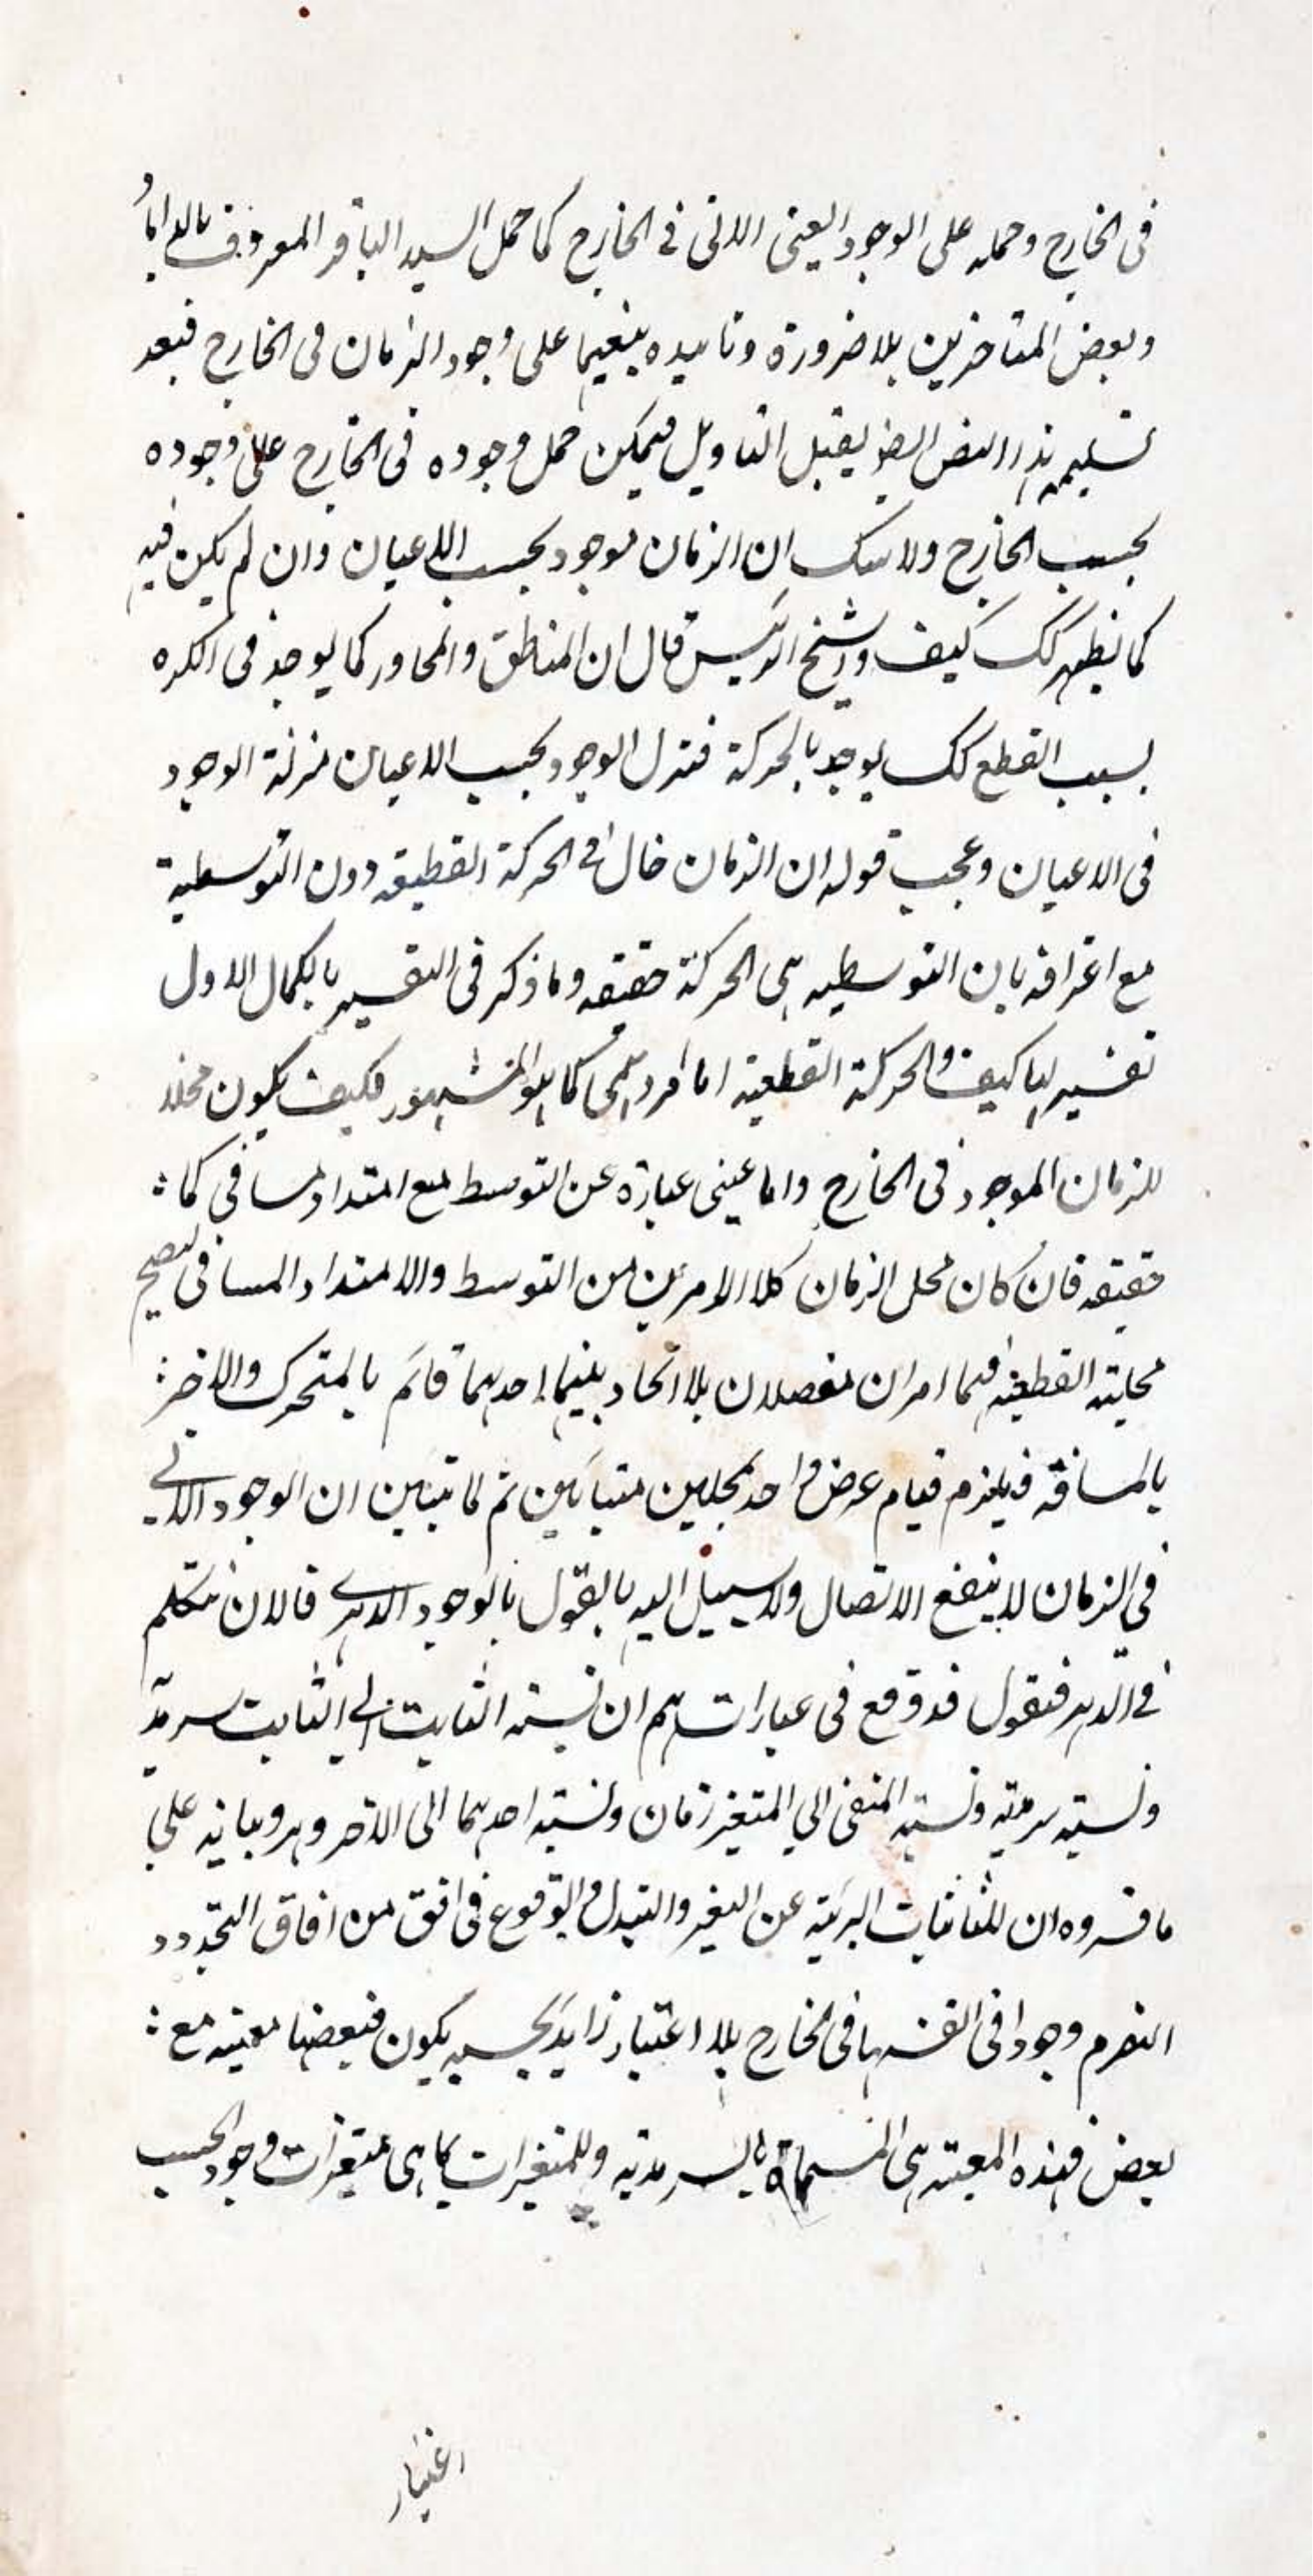 فى الخارج وحمله على الوجود العينى اللاتى فى الخارج كما حمل السيد الباقر المعروف بالداماد
وبعض المتاخرين بلا ضرورة وتاييده ينفيها على وجود الزمان فى الخارج فبعد
تسليم هذا النص ايضا يقبل التاويل فيمكن حمل وجوده فى الخارج على وجوده
بحسب الخارج ولا شك ان الزمان موجود بحسب الاعيان وان لم يكن فيه
كما يظهر لك كيف والشيخ الرئيس قال ان المناطق والمحاور كما يوجد فى الكره
بسبب القطع كك يوجد بالحركة فتنزل الوجود بحسب الاعيان منزلة الوجود
فى الاعيان وعجب قوله ان الزمان حال فى الحركة القطيقه دون التوسطية
مع اعترافه بان التوسطيه هى الحركة حقيقه وما ذكر فى التفسير بالكمال الاول
تفسير لها كيف والحركة القطعية اما امر وهمى كما هو المشهور فكيف يكون محلا
للزمان الموجود فى الخارج واما عينى عبارة عن التوسط مع امتداد مسافى كما
حقيقه فان كان محل الزمان كلا الامرين من التوسط والامتداد المسافى ليصح
محلية القطعية فهما امران منفصلان بلا اتحاد بينهما احدهما قائم بالمتحرك والاخر
بالمسافة فيلزم قيام عرض واحد بمحلين متباينين ثم لما تبين ان الوجود الانى
فى الزمان لا ينفع الاتصال ولا سبيل اليه بالقول بالوجود الدهرى فالان نتكلم
فى الدهر فنقول قد وقع فى عباراتهم ان نسبة الثابت الى الثابت سرمد
ونسبة سرمديه ونسبة المتغير الى المتغير زمان ونسبة احدهما الى الآخر دهر وبيانه على
ما فسروه ان للثابتات البرئية عن التغير والتبدل والوقوع فى افق من افاق التجدد و
التصرم وجودا فى انفسها فى الخارج بلا اعتبار زايد بحسبه يكون فبعضها معية مع
بعض فهذه المعية هى المسماة بالسرمدية وللمتغيرات بما هى متغيرات وجود بحسب
اعتبار